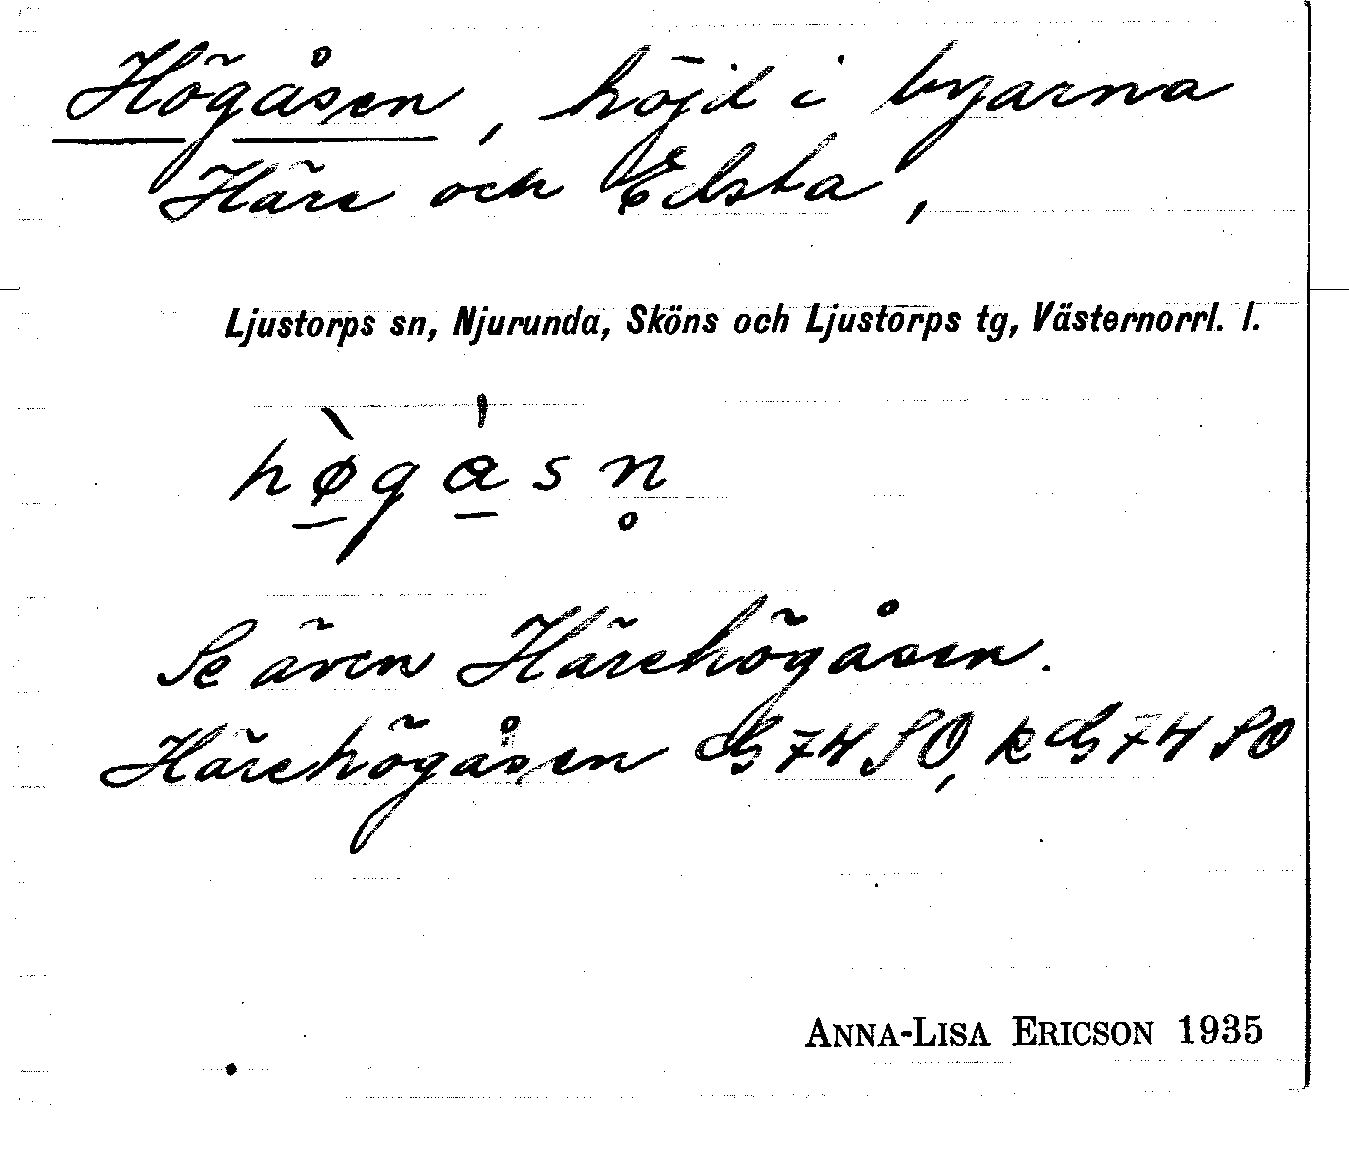 Högåsen, höjd i byarna
Häre och Edsta,
Ljustorps sn, Njurunda, Sköns och Ljustorps tg, Västernorrl. l.
hø̀ga̍sn̥
Se även Härehögåsen.
Härehögåsen G 74 SO, k G 74 SO
ANNA-LISA ERICSON 1935